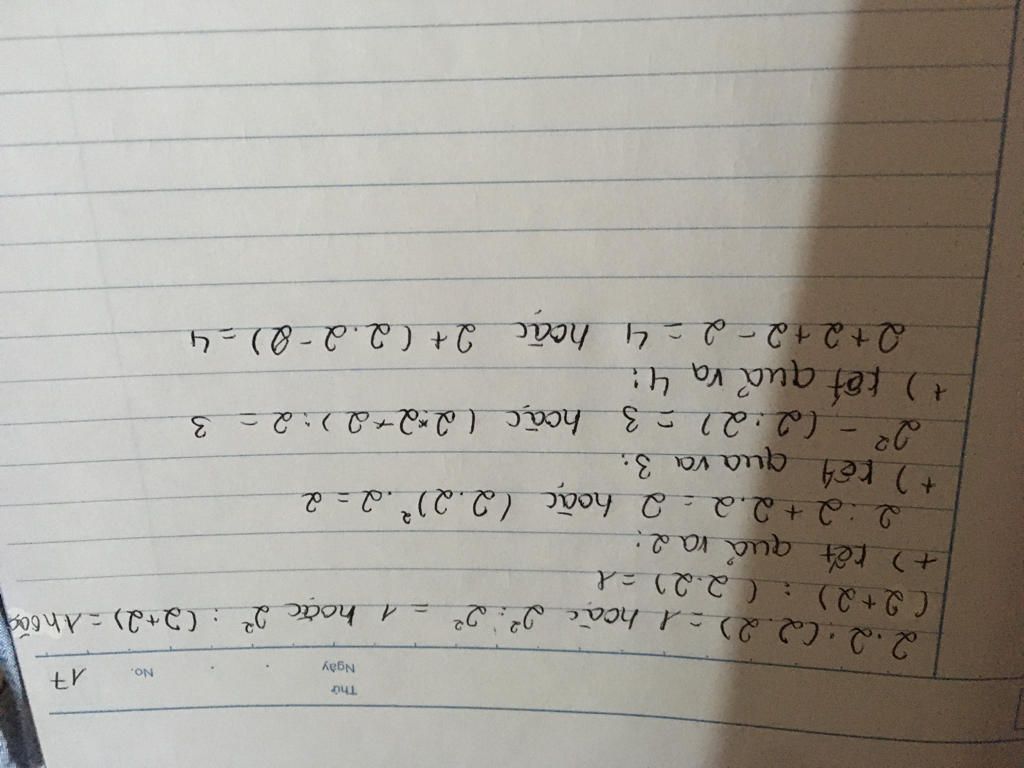 Thứ
Ngày . . No. 17
2.2:(2.2)=1 hoặc 2²:2² = 1 hoặc 2² : (2+2)=1 hoặc
(2+2) : (2.2)=1
+) kết quả ra 2:
2:2+2.2 = 2 hoặc (2.2)².2=2
+) kết quả ra 3:
2² - (2:2) = 3 hoặc (2.2+2):2 = 3
+) kết quả ra 4:
2+2+2-2=4 hoặc 2+(2.2-2)=4